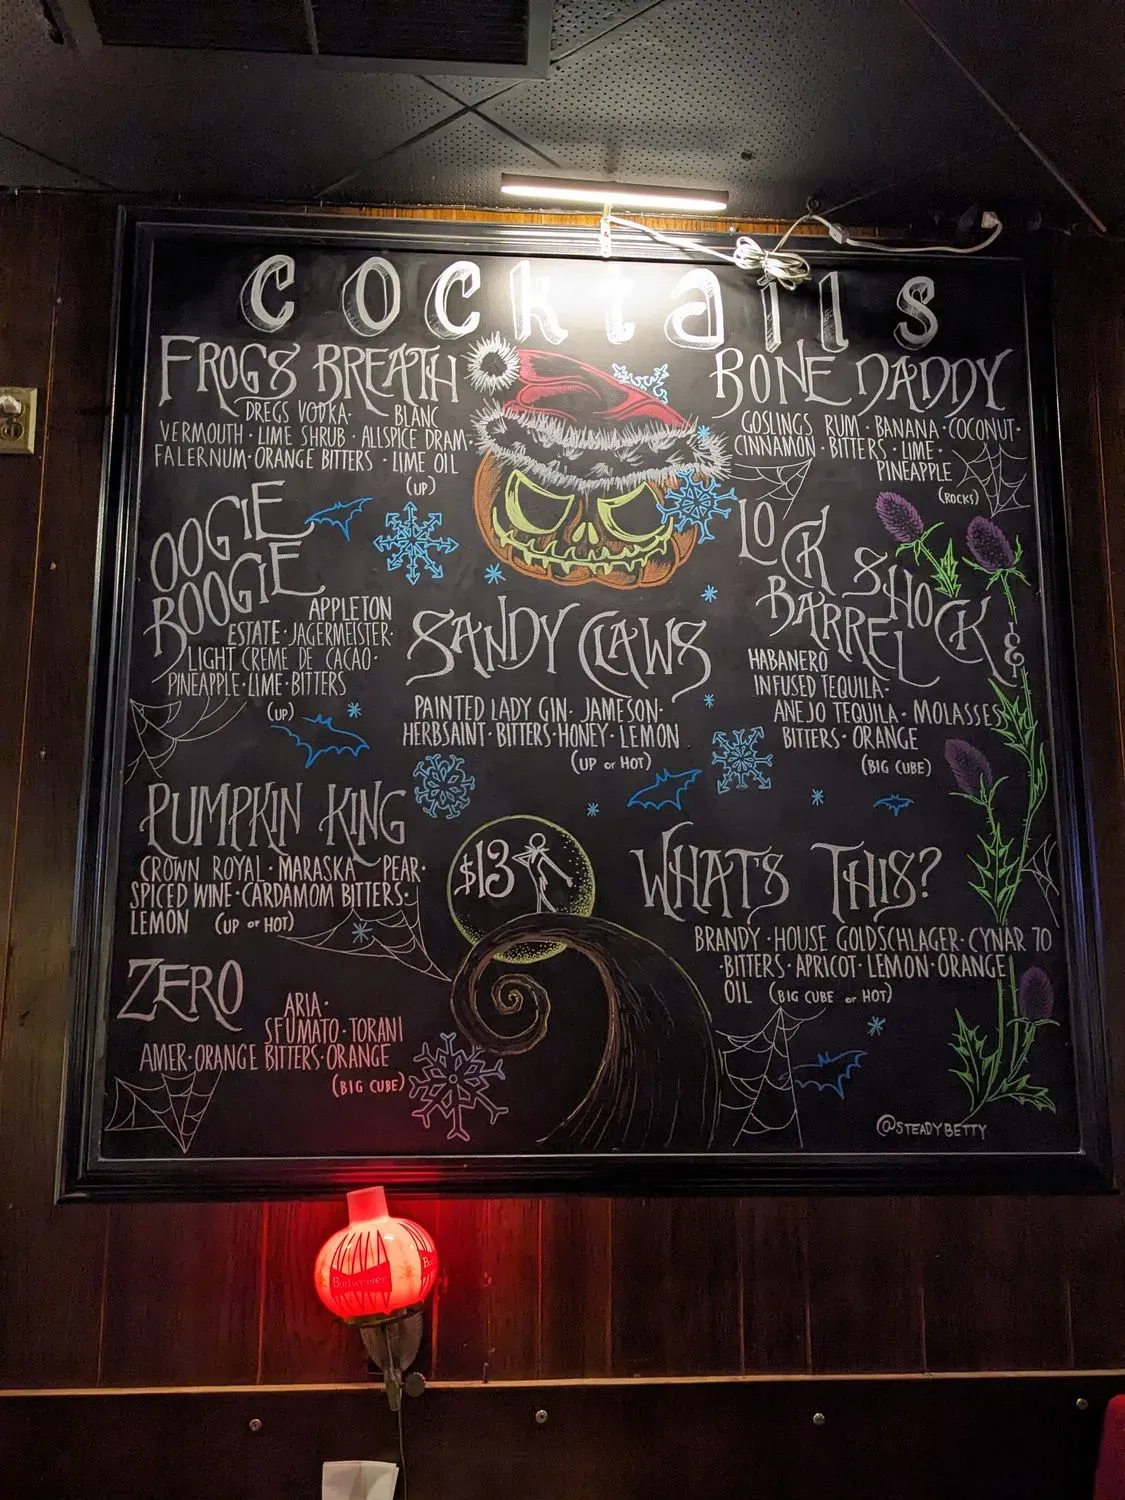 cocktails
FROGS BREATH
DREGS VODKA · BLANC
VERMOUTH · LIME SHRUB · ALLSPICE DRAM ·
FALERNUM · ORANGE BITTERS · LIME OIL
(UP)
BONE DADDY
GOSLINGS RUM · BANANA · COCONUT ·
CINNAMON · BITTERS · LIME ·
PINEAPPLE
(ROCKS)
OOGIE
BOOGIE
APPLETON
ESTATE · JAGERMEISTER ·
LIGHT CREME DE CACAO ·
PINEAPPLE · LIME · BITTERS
(UP)
SANDY CLAWS
PAINTED LADY GIN · JAMESON ·
HERBSAINT · BITTERS · HONEY · LEMON
(UP or HOT)
LOCK SHOCK &
BARREL
HABANERO
INFUSED TEQUILA ·
ANEJO TEQUILA · MOLASSES
BITTERS · ORANGE
(BIG CUBE)
PUMPKIN KING
CROWN ROYAL · MARASKA PEAR ·
SPICED WINE · CARDAMOM BITTERS ·
LEMON (UP or HOT)
$13
WHAT'S THIS?
BRANDY · HOUSE GOLDSCHLAGER · CYNAR 70
· BITTERS · APRICOT · LEMON · ORANGE
OIL (BIG CUBE or HOT)
ZERO
ARIA ·
SFUMATO · TORANI
AMER · ORANGE BITTERS · ORANGE
(BIG CUBE)
@STEADYBETTY
Budweiser